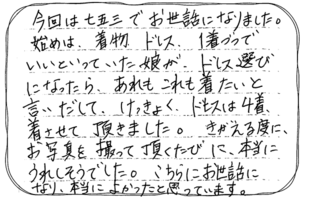 今回は七五三でお世話になりました。
始めは、着物、ドレス、1着づつで
いいといっていた娘が、ドレス選び
になったら、あれもこれも着たいと
言いだして、けっきょく、ドレスは4着、
着させて頂きました。きがえる度に、
お写真を撮って頂くたびに、本当に
うれしそうでした。こちらにお世話に
なり、本当によかったと思っています。